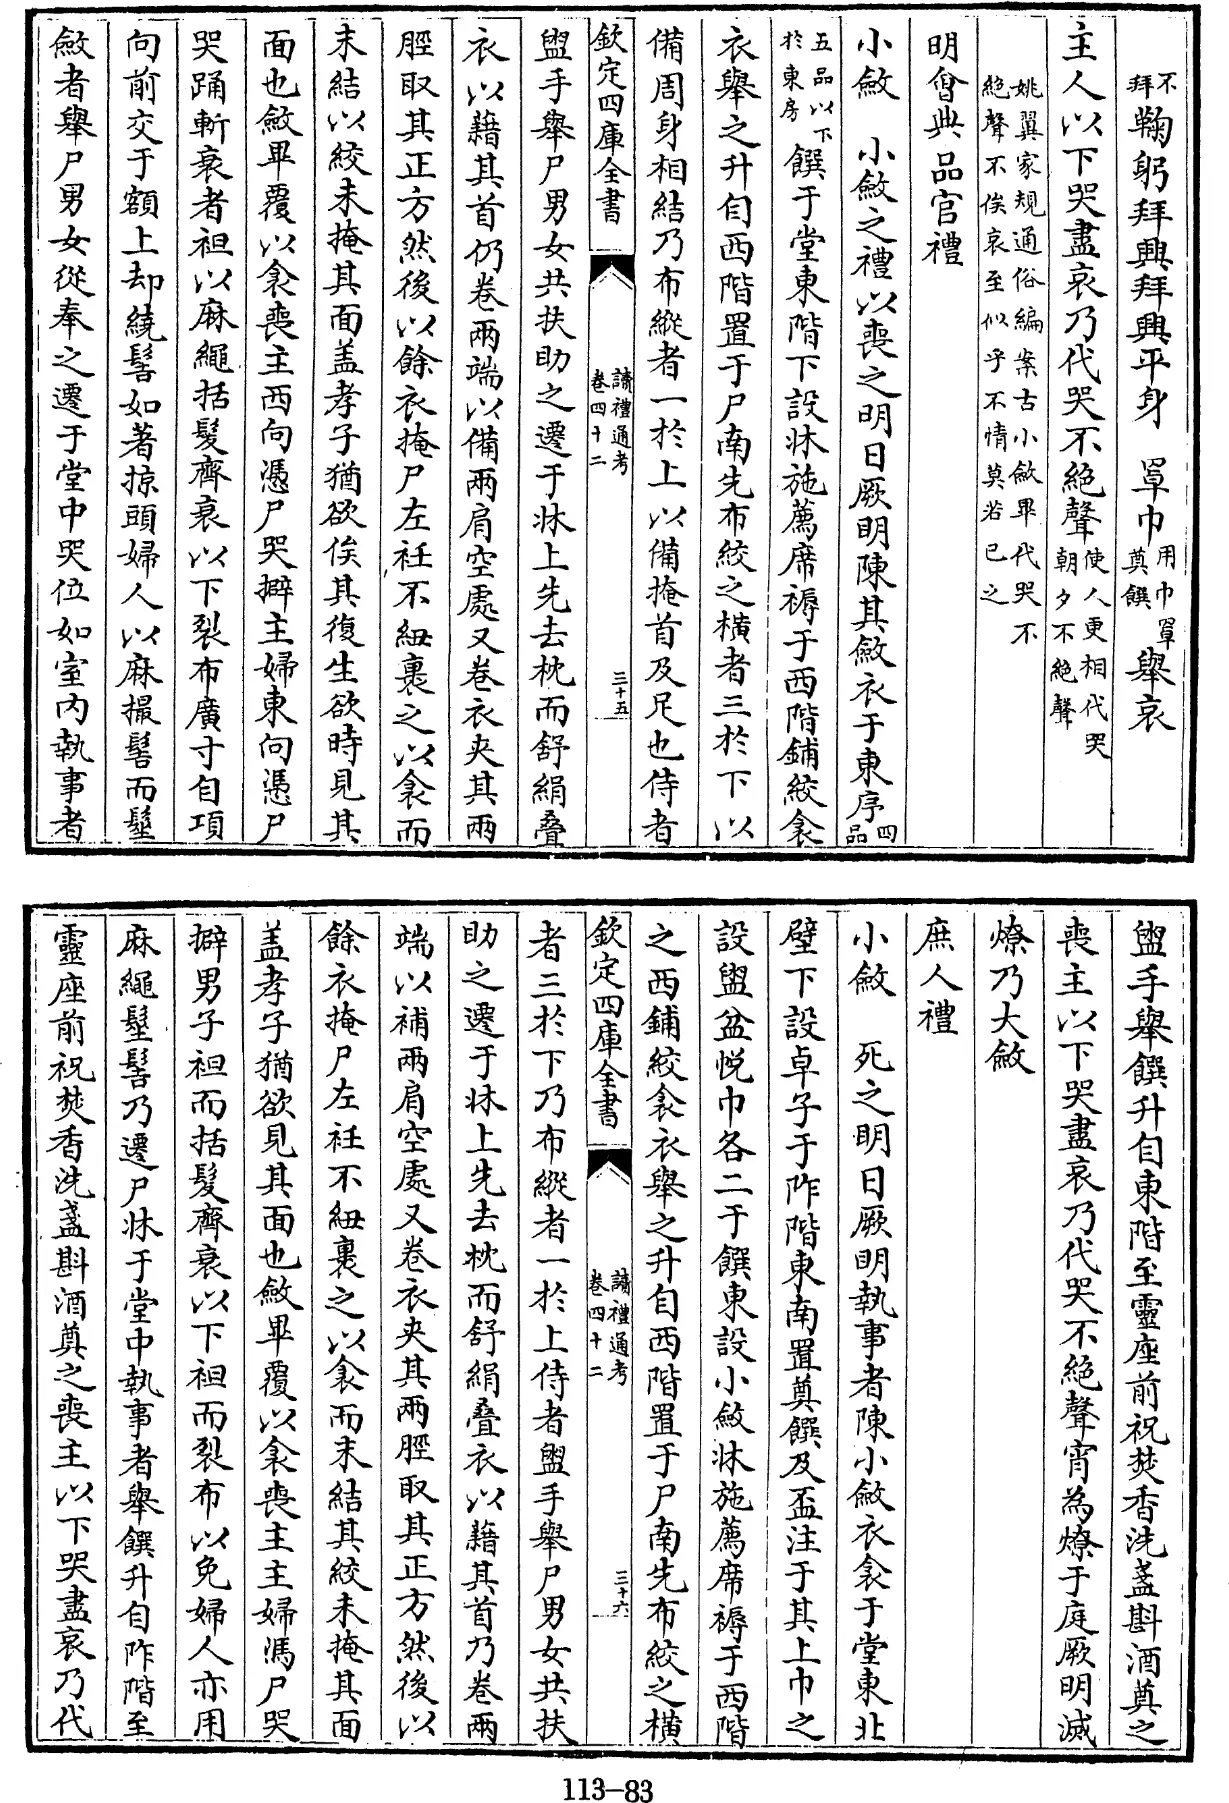 不拜鞠躬拜興拜興平身　罩巾用巾罩奠饌舉哀
主人以下哭盡哀乃代哭不絶聲使人更相代哭朝夕不絶聲
姚翼家規通俗編案古小斂畢代哭不絶聲不俟哀至似乎不情莫若已之
明會典品官禮
小斂　小斂之禮以喪之明日厥明陳其斂衣于東序四品
五品以下於東房饌于堂東階下設牀施薦席褥于西階鋪絞衾
衣舉之升自西階置于尸南先布絞之横者三於下以
備周身相結乃布縱者一於上以備掩首及足也侍者
欽定四庫全書
讀禮通考
卷四十二
三十五
盥手舉尸男女共扶助之遷于牀上先去枕而舒絹疊
衣以藉其首仍卷兩端以備兩肩空處又卷衣夾其兩
脛取其正方然後以餘衣掩尸左衽不紐裹之以衾而
末結以絞未掩其面盖孝子猶欲俟其復生欲時見其
面也斂畢覆以衾喪主西向憑尸哭擗主婦東向憑尸
哭踊斬衰者袒以麻繩括髮齊衰以下裂布廣寸自項
向前交于額上却繞髻如著掠頭婦人以麻撮髻而髽
斂者舉尸男女從奉之遷于堂中哭位如室内執事者
盥手舉饌升自東階至靈座前祝焚香洗盞斟酒奠之
喪主以下哭盡哀乃代哭不絶聲宵為燎于庭厥明滅
燎乃大斂
庶人禮
小斂　死之明日厥明執事者陳小斂衣衾于堂東北
壁下設卓子于阼階東南置奠饌及盃注于其上巾之
設盥盆帨巾各二于饌東設小斂牀施薦席褥于西階
之西鋪絞衾衣舉之升自西階置于尸南先布絞之横
欽定四庫全書
讀禮通考
卷四十二
三十六
者三於下乃布縱者一於上侍者盥手舉尸男女共扶
助之遷于牀上先去枕而舒絹疊衣以藉其首乃卷兩
端以補兩肩空處又卷衣夾其兩脛取其正方然後以
餘衣掩尸左衽不紐裹之以衾而末結其絞未掩其面
盖孝子猶欲見其面也斂畢覆以衾喪主主婦馮尸哭
擗男子袒而括髮齊衰以下袒而裂布以免婦人亦用
麻繩髽髻乃遷尸牀于堂中執事者舉饌升自阼階至
靈座前祝焚香洗盞斟酒奠之喪主以下哭盡哀乃代
113-83